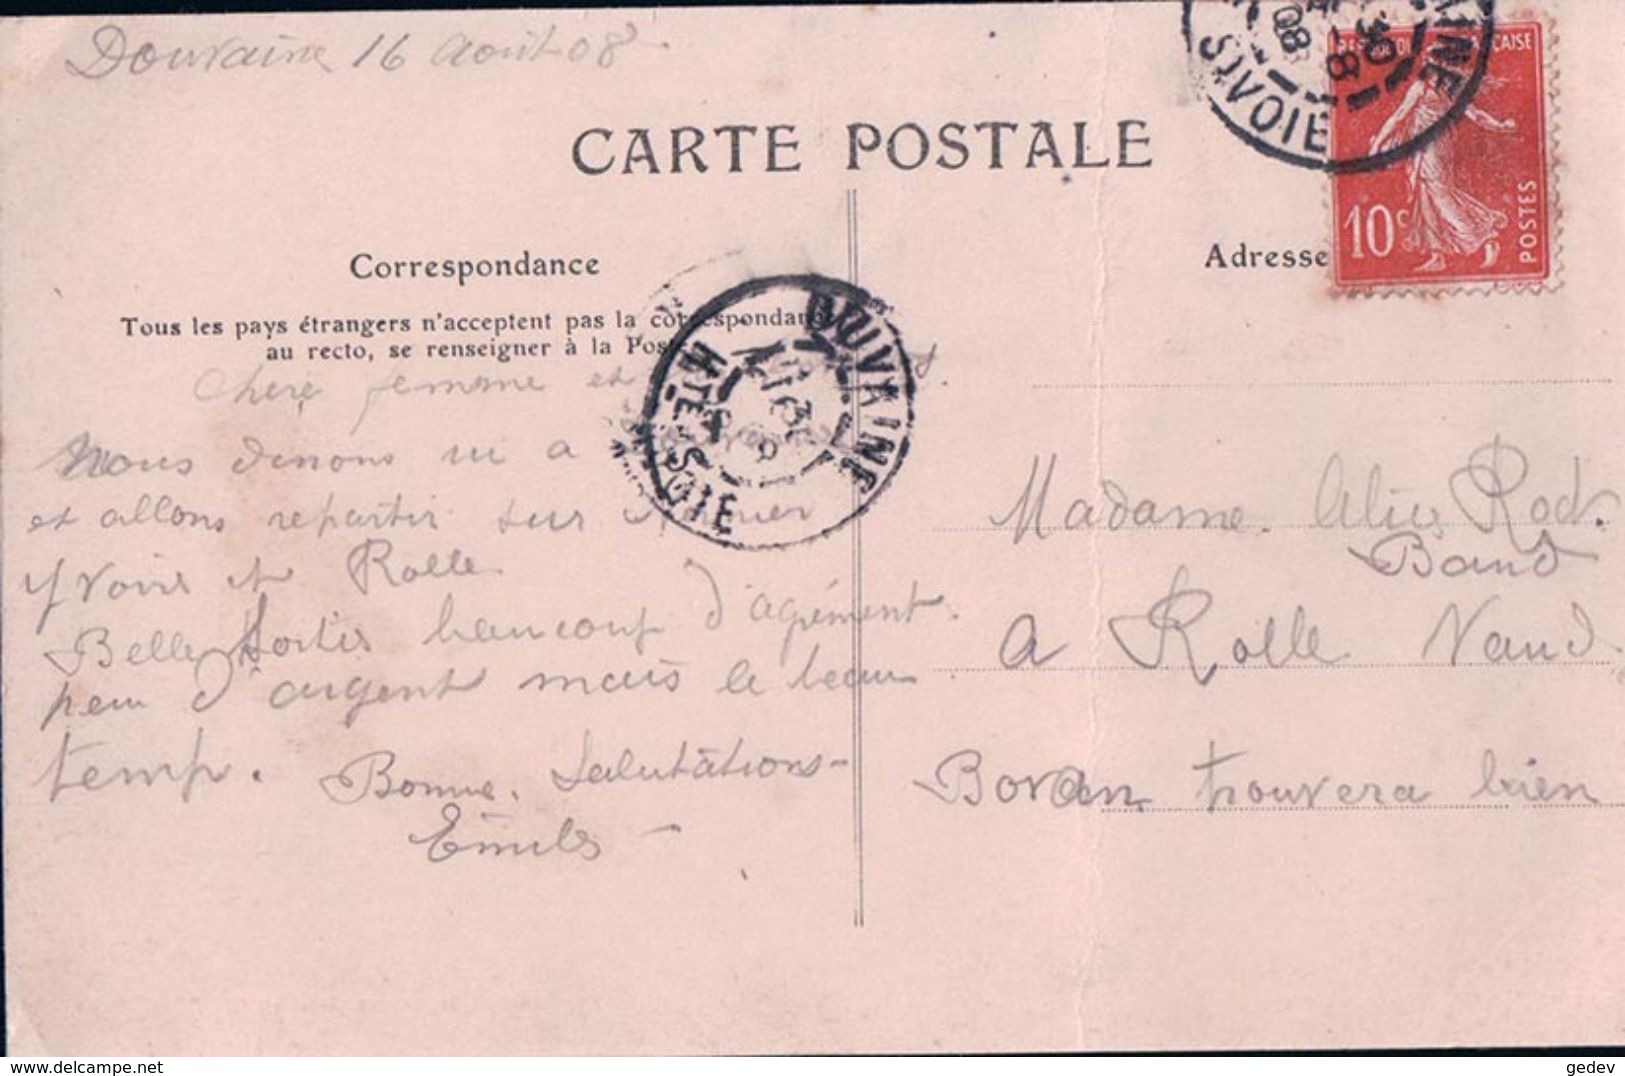 Douvaine 16 Août 08
CARTE POSTALE
RÉPUBLIQUE FRANÇAISE
10c
POSTES
Correspondance
Adresse
Tous les pays étrangers n'acceptent pas la correspondance
au recto, se renseigner à la Poste
DOUVAINE
HTE-SAVOIE
Chère femme et
Nous dinons ici a
et allons repartir sur
Yvoire et Rolle
Belle Sortie beaucoup d'agrément.
peu d'argent mais le beau
temp. Bonne. Salutations -
Emile -
Madame. Alice Rod.
Baud
a Rolle Vaud.
Bovan trouvera bien
gedev